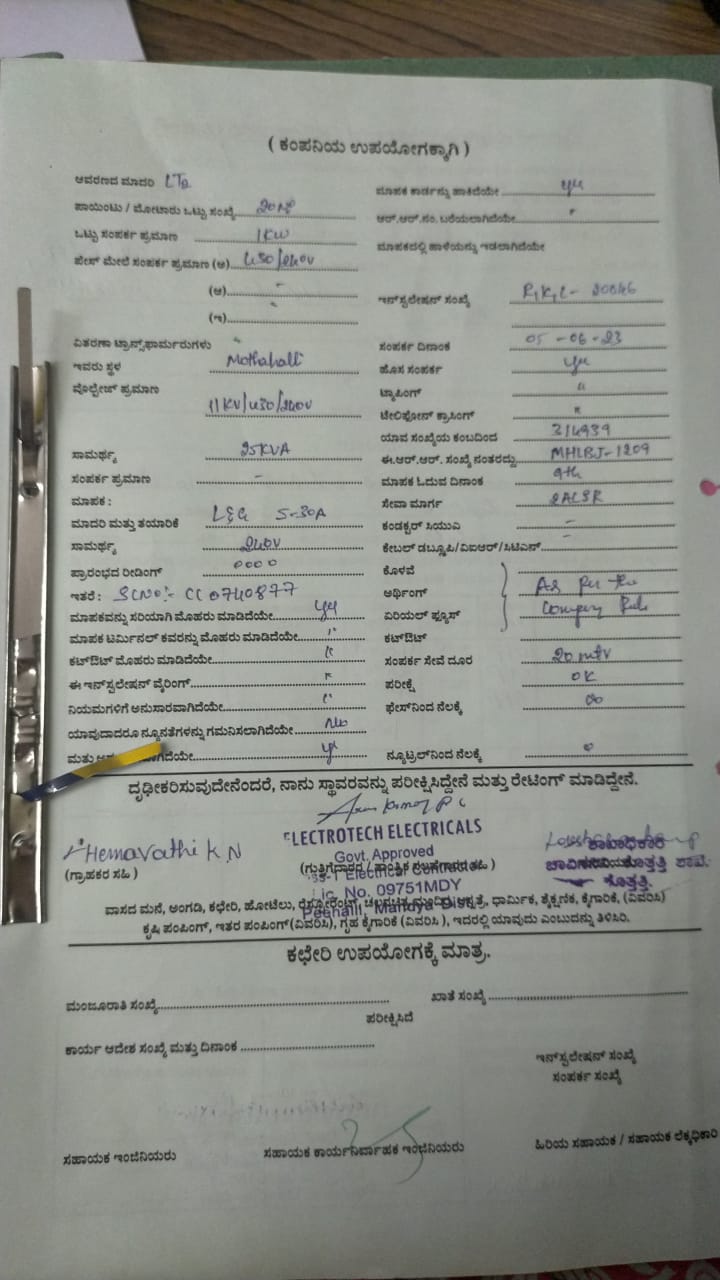 ( ಕಂಪನಿಯ ಉಪಯೋಗಕ್ಕಾಗಿ )
ಆವರಣದ ಮಾದರಿ LT2
ಪಾಯಿಂಟು / ಮೋಟಾರು ಒಟ್ಟು ಸಂಖ್ಯೆ
ಒಟ್ಟು ಸಂಪರ್ಕ ಪ್ರಮಾಣ 1KW
ಫೇಸ್ ಮೇಲೆ ಸಂಪರ್ಕ ಪ್ರಮಾಣ (ಅ) 430/240V
(ಆ) -
(ಇ)
ವಿತರಣಾ ಟ್ರಾನ್ಸ್‌ಫಾರ್ಮರುಗಳು
ಇವರು ಸ್ಥಳ Mothahalli
ವೊಲ್ಟೇಜ್ ಪ್ರಮಾಣ
11KV/430/240V
ಸಾಮರ್ಥ್ಯ 25KVA
ಸಂಪರ್ಕ ಪ್ರಮಾಣ -
ಮಾಪಕ :
ಮಾದರಿ ಮತ್ತು ತಯಾರಿಕೆ L&G 5-30A
ಸಾಮರ್ಥ್ಯ 240V
ಪ್ರಾರಂಭದ ರೀಡಿಂಗ್ 0000
ಇತರೆ : SCNo:- CC0740877
ಮಾಪಕವನ್ನು ಸರಿಯಾಗಿ ಮೊಹರು ಮಾಡಿದೆಯೇ yes
ಮಾಪಕ ಟರ್ಮಿನಲ್ ಕವರನ್ನು ಮೊಹರು ಮಾಡಿದೆಯೇ "
ಕಟ್‌ಔಟ್ ಮೊಹರು ಮಾಡಿದೆಯೇ "
ಈ ಇನ್‌ಸ್ಟಲೇಷನ್ ವೈರಿಂಗ್ "
ನಿಯಮಗಳಿಗೆ ಅನುಸಾರವಾಗಿದೆಯೇ "
ಯಾವುದಾದರೂ ನ್ಯೂನತೆಗಳನ್ನು ಗಮನಿಸಲಾಗಿದೆಯೇ No
ಮತ್ತು
ಮಾಪಕ ಕಾರ್ಡನ್ನು ಹಾಕಿದೆಯೇ yes
ಆರ್.ಆರ್.ನಂ. ಬರೆಯಲಾಗಿದೆಯೇ "
ಮಾಪಕದಲ್ಲಿ ಹಾಳೆಯನ್ನು ಇಡಲಾಗಿದೆಯೇ
ಇನ್‌ಸ್ಟಲೇಷನ್ ಸಂಖ್ಯೆ 20846
ಸಂಪರ್ಕ ದಿನಾಂಕ 05-06-23
ಹೊಸ ಸಂಪರ್ಕ yes
ಟ್ಯಾಪಿಂಗ್ "
ಟೆಲಿಫೋನ್ ಕ್ರಾಸಿಂಗ್ "
ಯಾವ ಸಂಖ್ಯೆಯ ಕಂಬದಿಂದ 314939
ಈ.ಆರ್.ಆರ್. ಸಂಖ್ಯೆ ನಂತರದ್ದು MHLBJ-1209
ಮಾಪಕ ಓದುವ ದಿನಾಂಕ 9th
ಸೇವಾ ಮಾರ್ಗ
ಕಂಡಕ್ಟರ್ ಸಿಯುವಿ -
ಕೇಬಲ್ ಡಬ್ಲೂಪಿ/ವಿಐಆರ್/ಸಿಟಿಎಸ್ -
ಕೊಳವೆ
ಅರ್ಥಿಂಗ್ As Per the
ಏರಿಯಲ್ ಫ್ಯೂಸ್ Company Rule
ಕಟ್‌ಔಟ್
ಸಂಪರ್ಕ ಸೇವೆ ದೂರ 20 mtr
ಪರೀಕ್ಷೆ OK
ಫೇಸ್‌ನಿಂದ ನೆಲಕ್ಕೆ ∞
ನ್ಯೂಟ್ರಲ್‌ನಿಂದ ನೆಲಕ್ಕೆ 0
ದೃಢೀಕರಿಸುವುದೇನೆಂದರೆ, ನಾನು ಸ್ಥಾವರವನ್ನು ಪರೀಕ್ಷಿಸಿದ್ದೇನೆ ಮತ್ತು ರೇಟಿಂಗ್ ಮಾಡಿದ್ದೇನೆ.
Hemavathi K N
(ಗ್ರಾಹಕರ ಸಹಿ )
ELECTROTECH ELECTRICALS
Govt. Approved
Electrical Contractor
Lic. No. 09751MDY
Peehalli, Mandya Dist.
ಶಾಖಾಧಿಕಾರಿ
ಕೊತ್ತತ್ತಿ.
ವಾಸದ ಮನೆ, ಅಂಗಡಿ, ಕಛೇರಿ, ಹೋಟೆಲು, ರೆಸ್ಟೋರೆಂಟ್, ಚಲನಚಿತ್ರ ಮಂದಿರ, ಆಸ್ಪತ್ರೆ, ಧಾರ್ಮಿಕ, ಶೈಕ್ಷಣಿಕ, ಕೈಗಾರಿಕೆ, (ವಿವರಿಸಿ)
ಕೃಷಿ ಪಂಪಿಂಗ್, ಇತರ ಪಂಪಿಂಗ್(ವಿವರಿಸಿ), ಗೃಹ ಕೈಗಾರಿಕೆ (ವಿವರಿಸಿ ), ಇದರಲ್ಲಿ ಯಾವುದು ಎಂಬುದನ್ನು ತಿಳಿಸಿರಿ.
ಕಛೇರಿ ಉಪಯೋಗಕ್ಕೆ ಮಾತ್ರ.
ಮಂಜೂರಾತಿ ಸಂಖ್ಯೆ
ಖಾತೆ ಸಂಖ್ಯೆ
ಪರೀಕ್ಷಿಸಿದೆ
ಕಾರ್ಯ ಆದೇಶ ಸಂಖ್ಯೆ ಮತ್ತು ದಿನಾಂಕ
ಇನ್‌ಸ್ಟಲೇಷನ್ ಸಂಖ್ಯೆ
ಸಂಪರ್ಕ ಸಂಖ್ಯೆ
ಸಹಾಯಕ ಇಂಜಿನಿಯರು
ಸಹಾಯಕ ಕಾರ್ಯನಿರ್ವಾಹಕ ಇಂಜಿನಿಯರು
ಹಿರಿಯ ಸಹಾಯಕ / ಸಹಾಯಕ ಲೆಕ್ಕಧಿಕಾರಿ